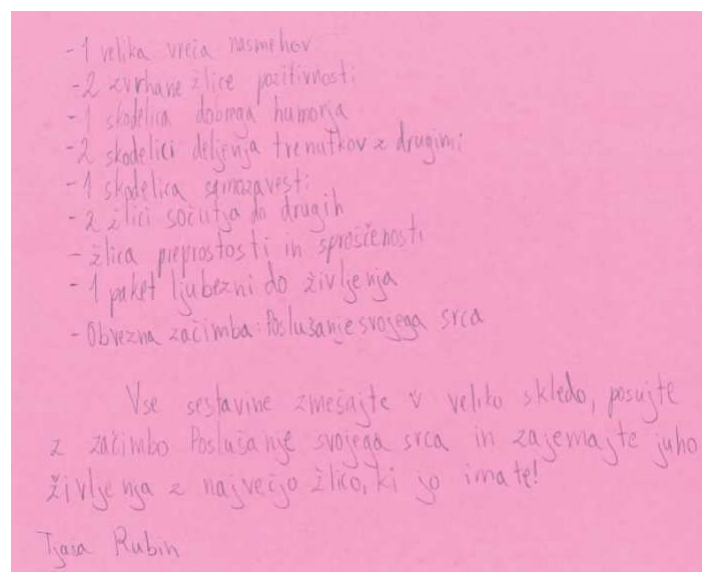 - 1 velika vreča nasmehov
- 2 zvrhane žlice pozitivnosti
- 1 skodelica dobrega humorja
- 2 skodelici deljenja trenutkov z drugimi
- 1 skodelica samozavesti
- 2 žlici sočutja do drugih
- žlica preprostosti in sproščenosti
- 1 paket ljubezni do življenja
- Obvezna začimba: Poslušanje svojega srca
Vse sestavine zmešajte v veliko skledo, posujte
z začimbo Poslušanje svojega srca in zajemajte juho
življenja z največjo žlico, ki jo imate!
Tjaša Rubin